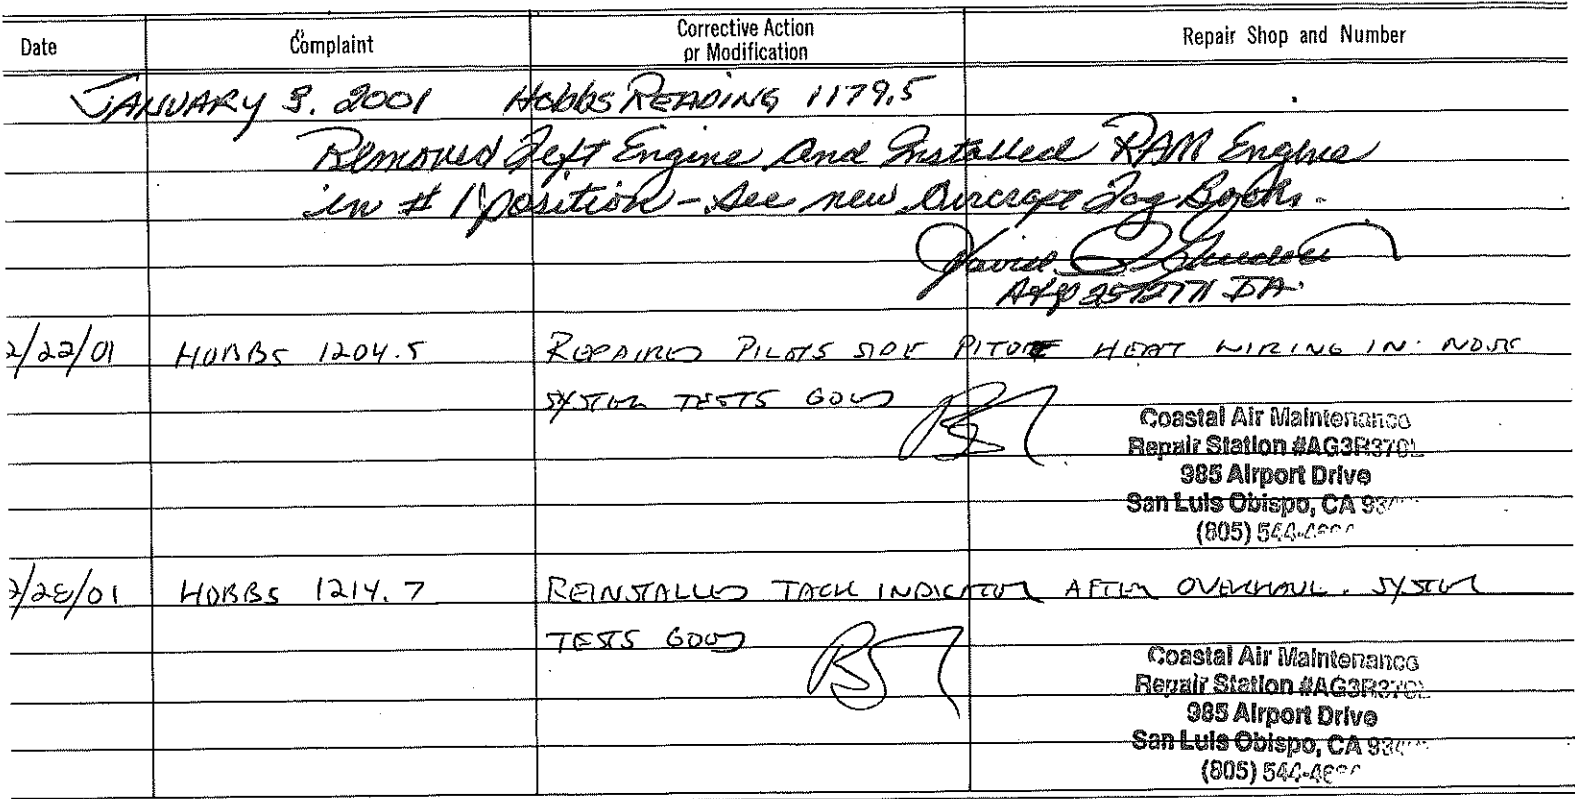 Date Complaint Corrective Action or Modification Repair Shop and Number
JANUARY 3, 2001 HOBBS READING 1179.5
Removed Left Engine And Installed RAM Engine
in # 1 position - See new Aircraft Log Books.
A&P 2572771 IA
2/22/01 HOBBS 1204.5 REPAIRED PILOTS SIDE PITOT HEAT WIRING IN NOSE
SYSTEM TESTS GOOD
Coastal Air Maintenance
Repair Station #AG3R370L
985 Airport Drive
San Luis Obispo, CA
(805) 544-
2/28/01 HOBBS 1214.7 REINSTALLED TACH INDICATOR AFTER OVERHAUL. SYSTEM
TESTS GOOD
Coastal Air Maintenance
Repair Station #AG3R370L
985 Airport Drive
San Luis Obispo, CA
(805) 544-